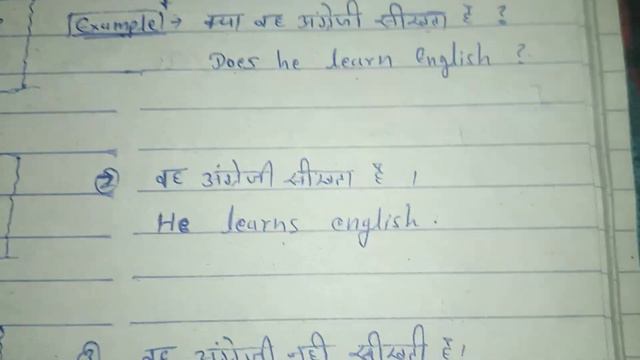 [Example] → क्या वह अंग्रेजी सीखता है ?
Does he learn english ?
② वह अंग्रेजी सीखता है ।
He learns english.
③ वह अंग्रेजी नही सीखती है।